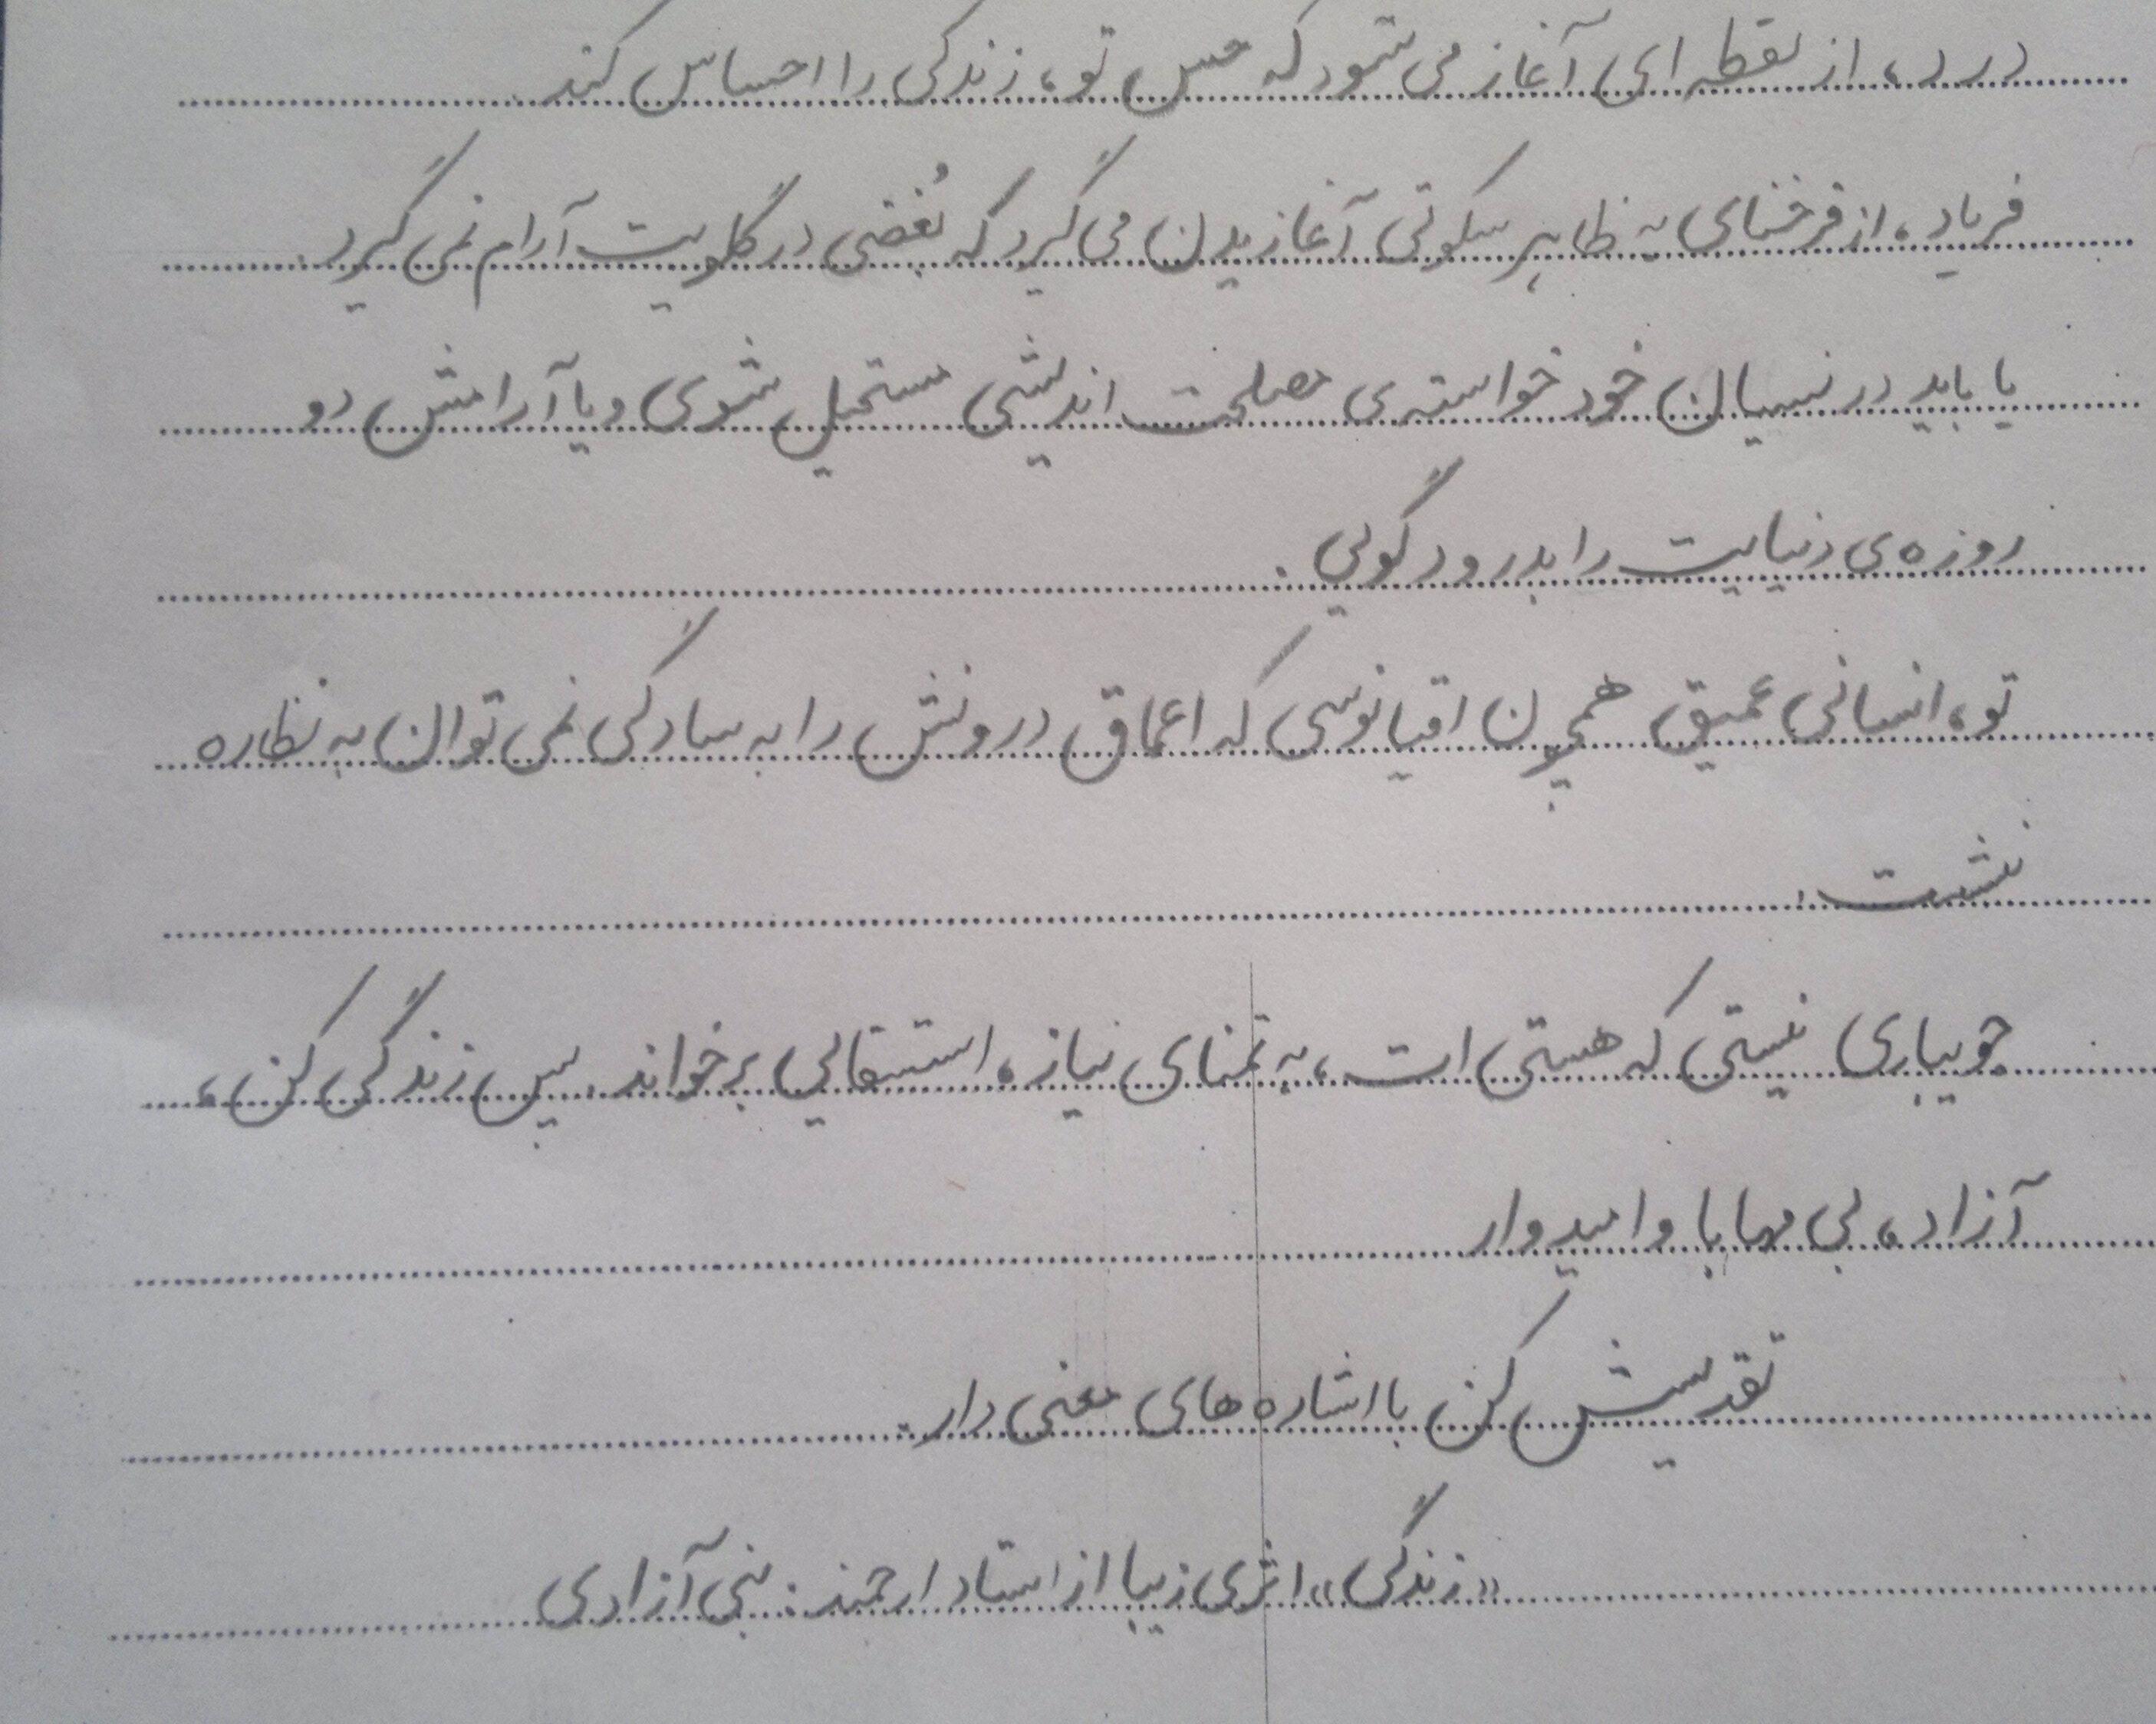 درد، از نقطه ای آغاز می شود که حس تو، زندگی را احساس کند.
فریاد، از فرخنای به ظاهر سکوتی آغازیدن می گیرد که بُغضی در گلویت آرام نمی گیرد.
یا باید در نسیان خود خواسته ی مصلحت اندیشی مستحیل شوی و یا آرامش دو
روزه ی دنیایت را بدرود گویی.
تو، انسانی عمیق همچون اقیانوسی که اعماق درونش را به سادگی نمی توان به نظاره
نشست.
جویباری نیستی که هستی ات، به تمنای نیاز، استقالی برخواند. پس زندگی کن،
آزاد، بی مهابا و امیدوار
تقدیسش کن با اشاره های معنی دار.
«زندگی» اثری زیبا از استاد ارجمند: نبی آزادی